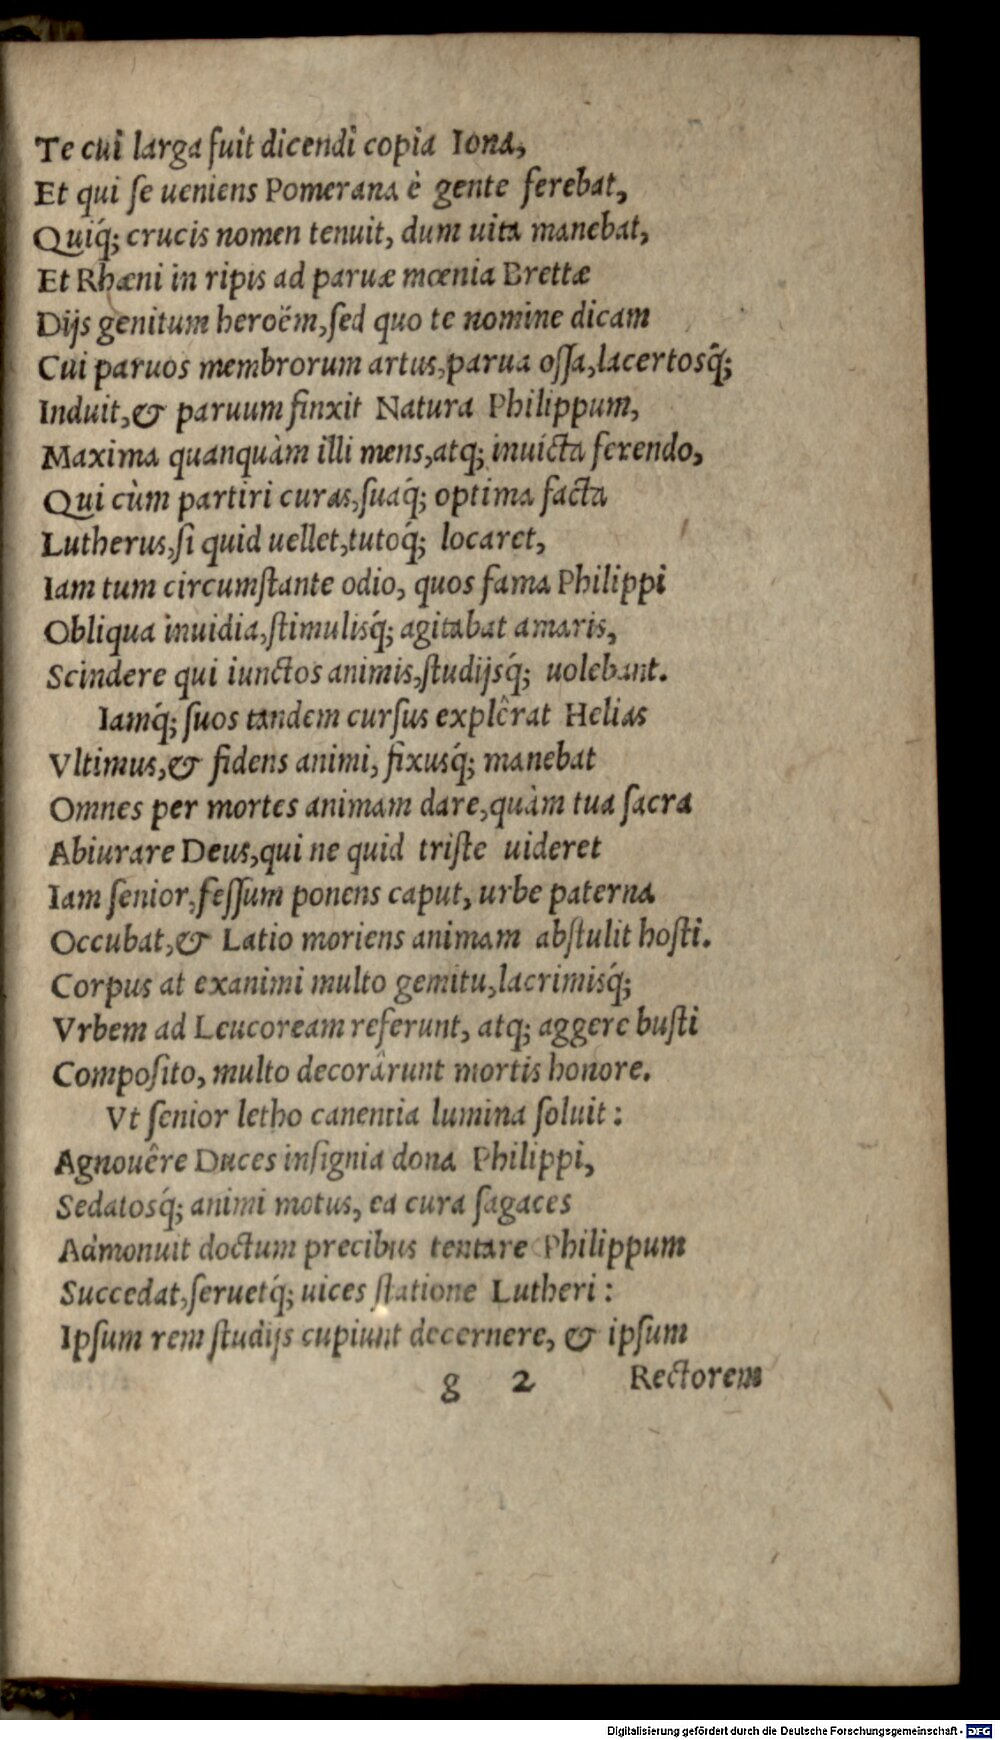 Te cui larga fuit dicendi copia Iona,
Et qui se ueniens Pomerana è gente ferebat,
Quiq́; crucis nomen tenuit, dum uita manebat,
Et Rhæni in ripis ad paruæ mœnia Brettæ
Dijs genitum heroëm, sed quo te nomine dicam
Cui paruos membrorum artus, parua ossa, lacertosq́;
Induit, & paruum finxit Natura Philippum,
Maxima quanquàm illi mens, atq; inuicta ferendo,
Qui cùm partiri curas, suaq́; optima facta
Lutherus, si quid uellet, tutoq́; locaret,
Iam tum circumstante odio, quos fama Philippi
Obliqua inuidia, stimulisq́; agitabat amaris,
Scindere qui iunctos animis, studijsq́; uolebant.
Iamq́; suos tandem cursus explêrat Helias
Vltimus, & fidens animi, fixusq́; manebat
Omnes per mortes animam dare, quàm tua sacra
Abiurare Deus, qui ne quid triste uideret
Iam senior, fessum ponens caput, urbe paterna
Occubat, & Latio moriens animam abstulit hosti.
Corpus at exanimi multo gemitu, lacrimisq́;
Vrbem ad Leucoream referunt, atq; aggere busti
Composito, multo decorârunt mortis honore.
Vt senior letho canentia lumina soluit:
Agnouêre Duces insignia dona Philippi,
Sedatosq́; animi motus, ea cura sagaces
Admonuit doctum precibus tentare Philippum
Succedat, seruetq́; uices statione Lutheri:
Ipsum rem studijs cupiunt decernere, & ipsum
g 2 Rectorem
Digitalisierung gefördert durch die Deutsche Forschungsgemeinschaft - DFG